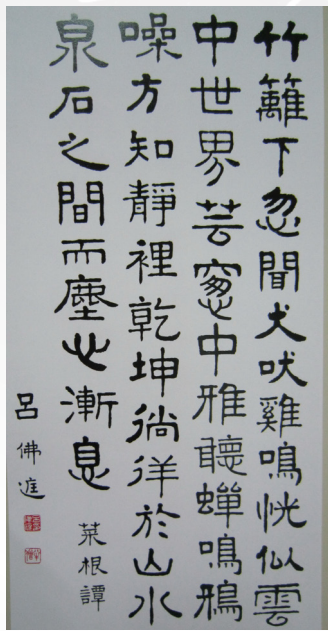 竹籬下忽聞犬吠雞鳴恍似雲
中世界芸窓中雅聽蟬鳴鴉
噪方知靜裡乾坤徜徉於山水
泉石之間而塵心漸息
菜根譚
呂佛進